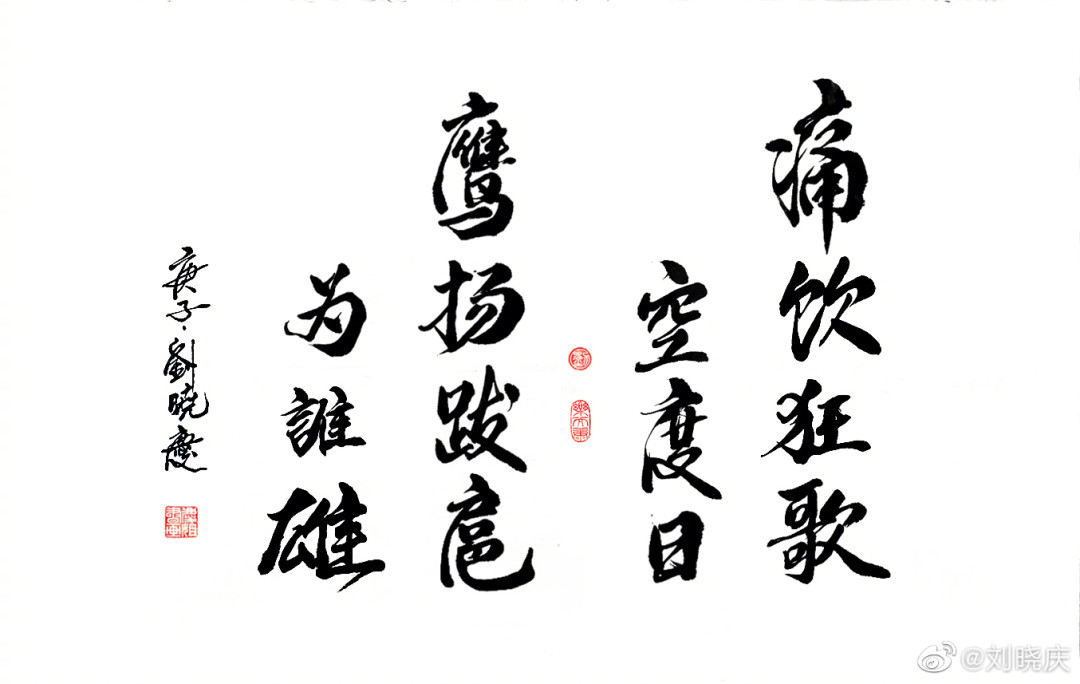 痛饮狂歌
空度日
鹰扬跋扈
为誰雄
庚子·劉曉慶
@刘晓庆